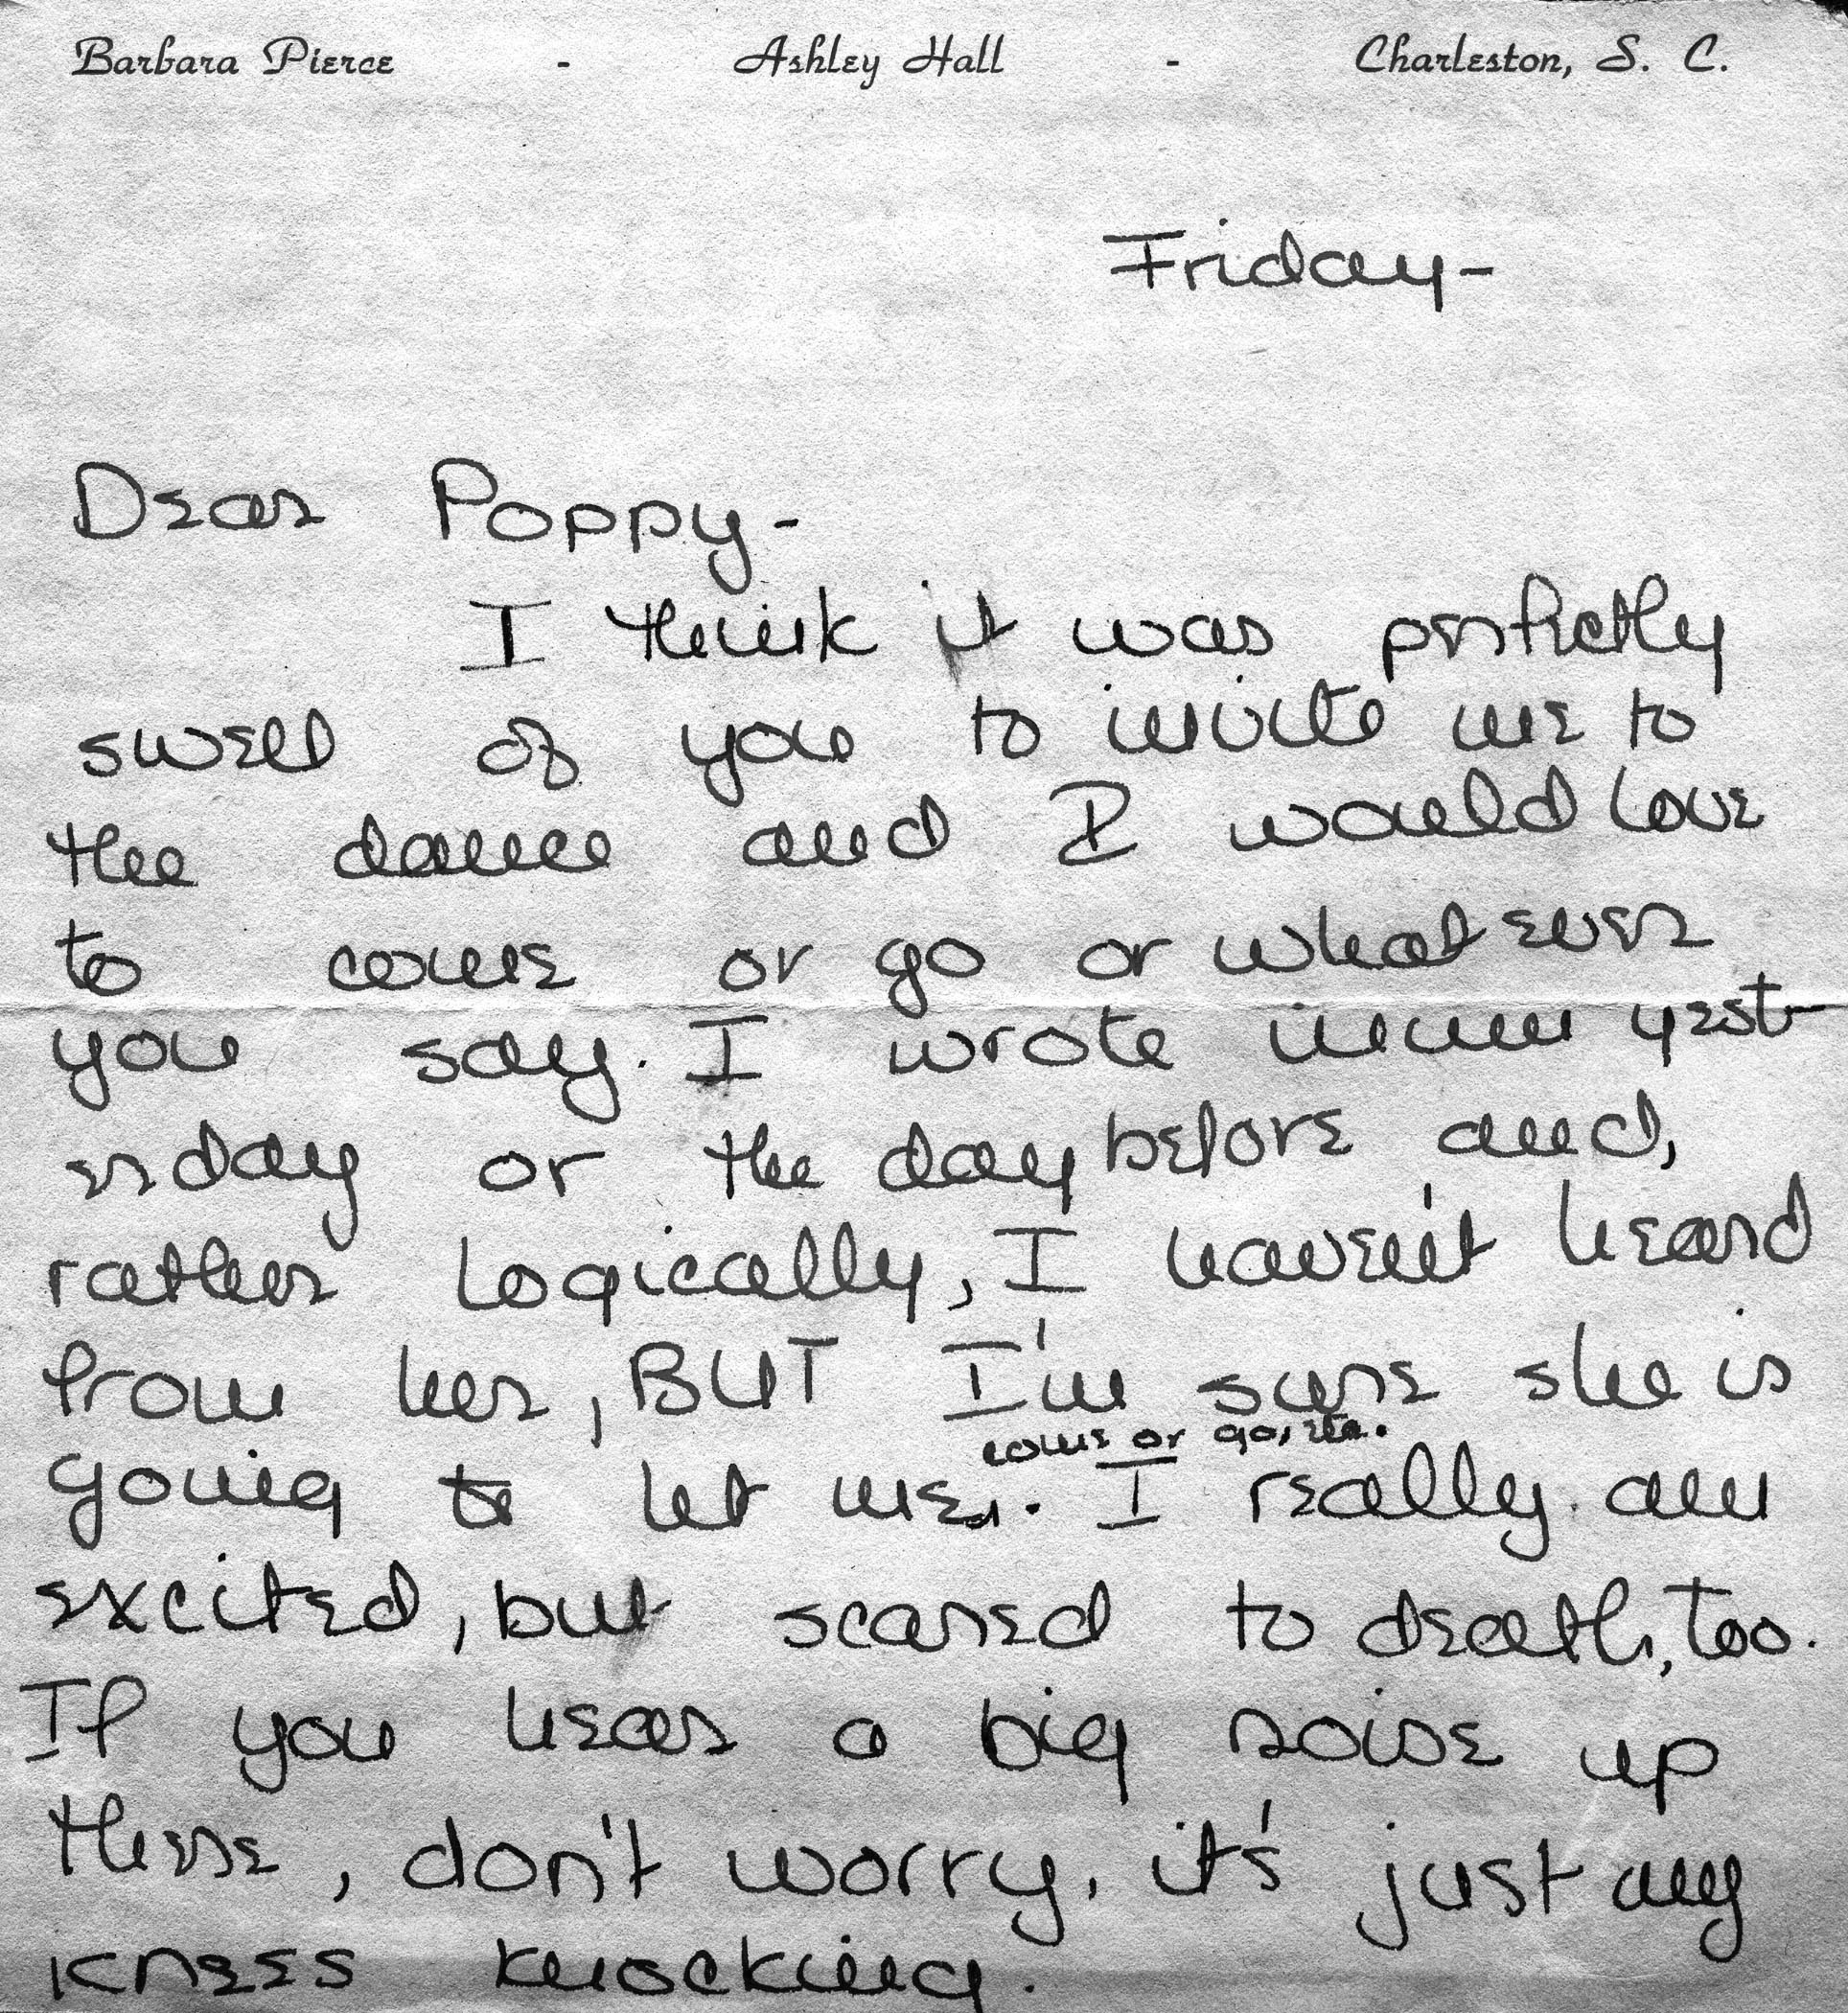 Barbara Pierce - Ashley Hall - Charleston, S. C.
Friday-
Dear Poppy-
I think it was perfectly
swell of you to invite me to
the dance and I would love
to come or go or whatever
you say. I wrote mum yest-
erday or the day before and,
rather logically, I haven't heard
from her, BUT I'm sure she is
come or go, etc.
going to let me. I really am
excited, but scared to death, too.
If you hear a big noise up
there, don't worry, it's just my
knees knocking.